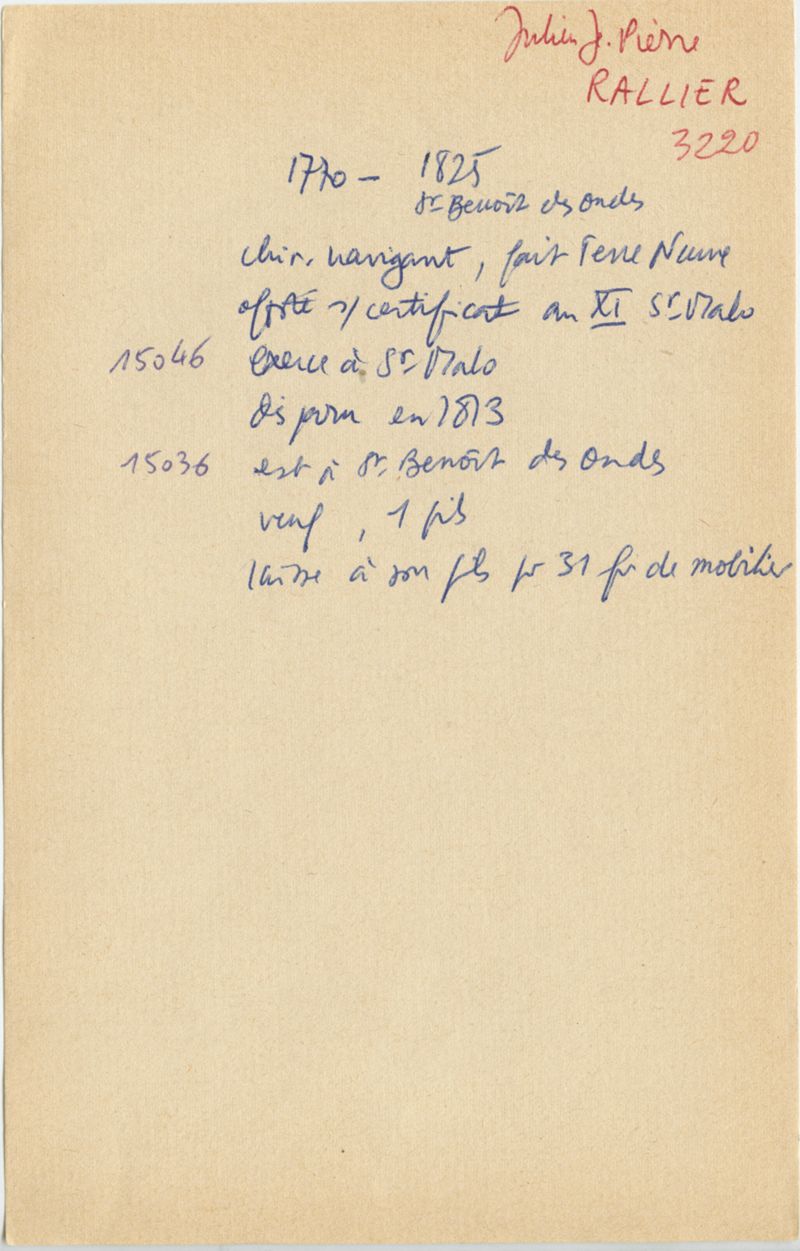 Julien J. Pierre
RALLIER
3220
1770 - 1825
St Benoît des Ondes
chir. navigant, fait Terre Neuve
s/ certificat an XI St Malo
15046 exerce à St Malo
disparu en 1813
15036 est à St Benoît des Ondes
veuf, 1 fils
laisse à son fils pr 31 fr de mobilier